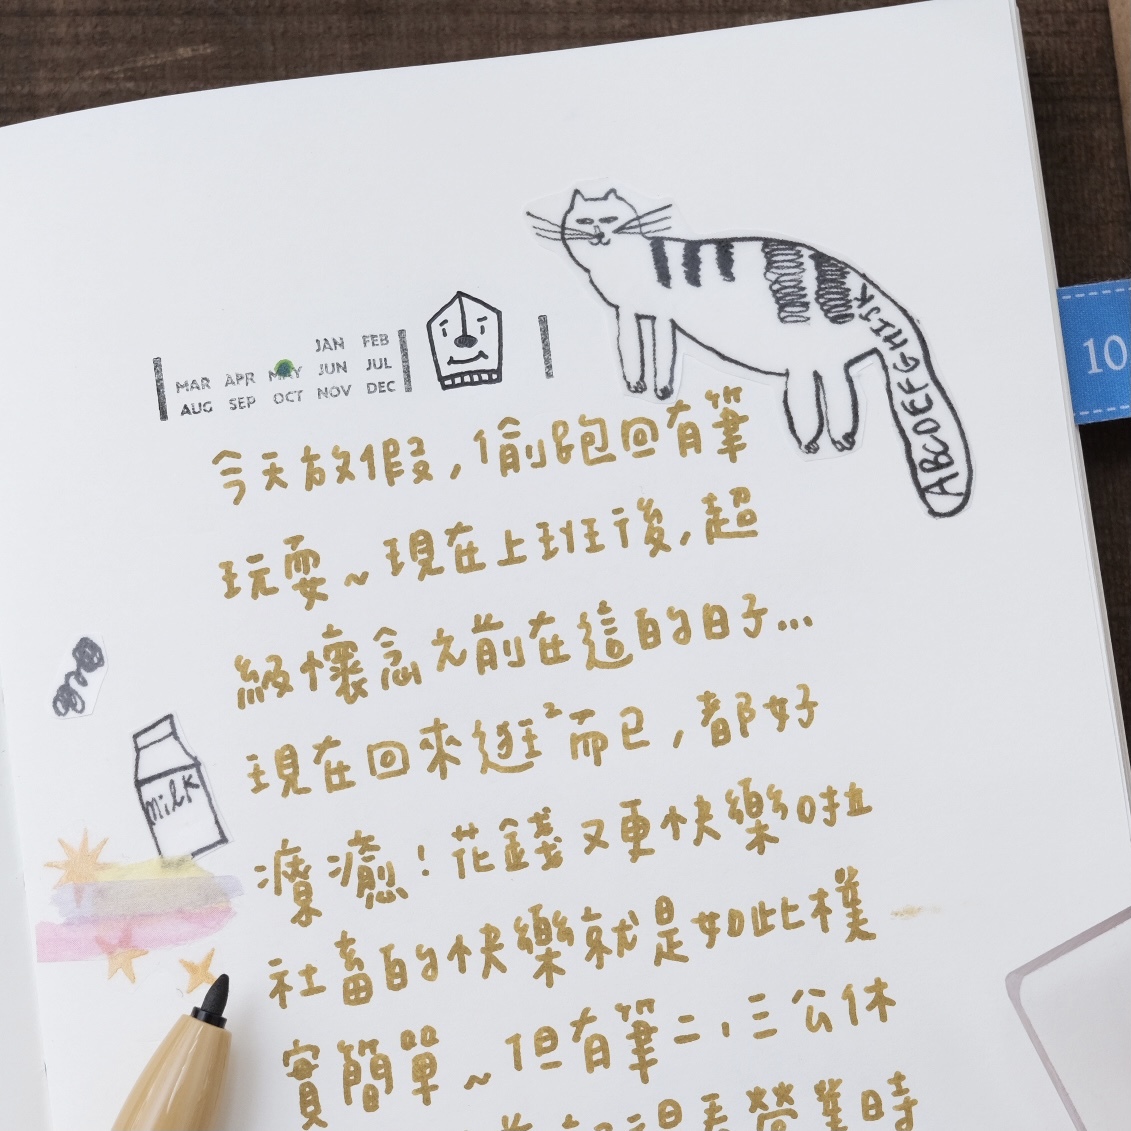 JAN FEB
MAR APR MAY JUN JUL
AUG SEP OCT NOV DEC
ABCDEFGHIJK
10
今天放假,偷跑回有筆
玩耍~現在上班後,超
級懷念之前在這的日子...
現在回來逛²而已,都好
療癒!花錢又更快樂啦
milk
社畜的快樂就是如此樸
實簡單~但有筆二、三公休
營業時